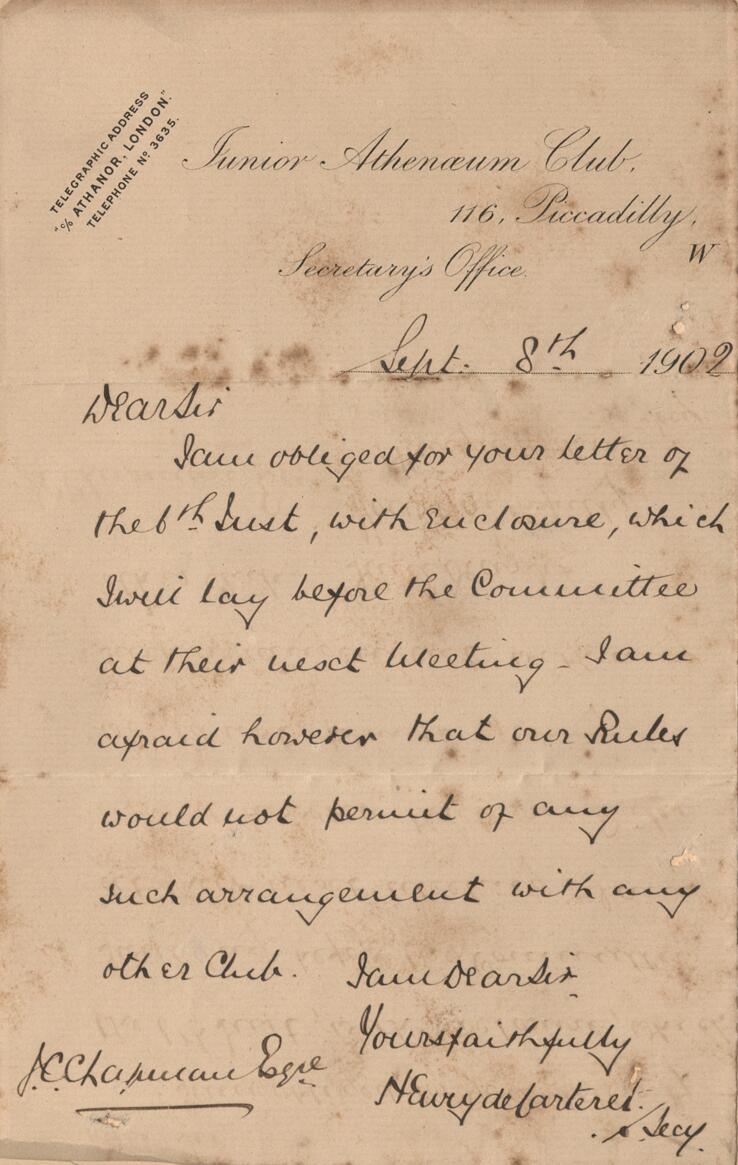 TELEGRAPHIC ADDRESS
"c/o ATHANOR, LONDON."
TELEPHONE Nº 3635.
Junior Athenæum Club,
116, Piccadilly,
W
Secretary's Office.
Sept. 8th 1902
Dear Sir
I am obliged for your letter of
the 6th Inst, with Enclosure, which
I will lay before the Committee
at their next Meeting - I am
afraid however that our Rules
would not permit of any
such arrangement with any
other Club. I am Dear Sir
Yours faithfully
Henry
Secy.
J.C. Chapman Esqre